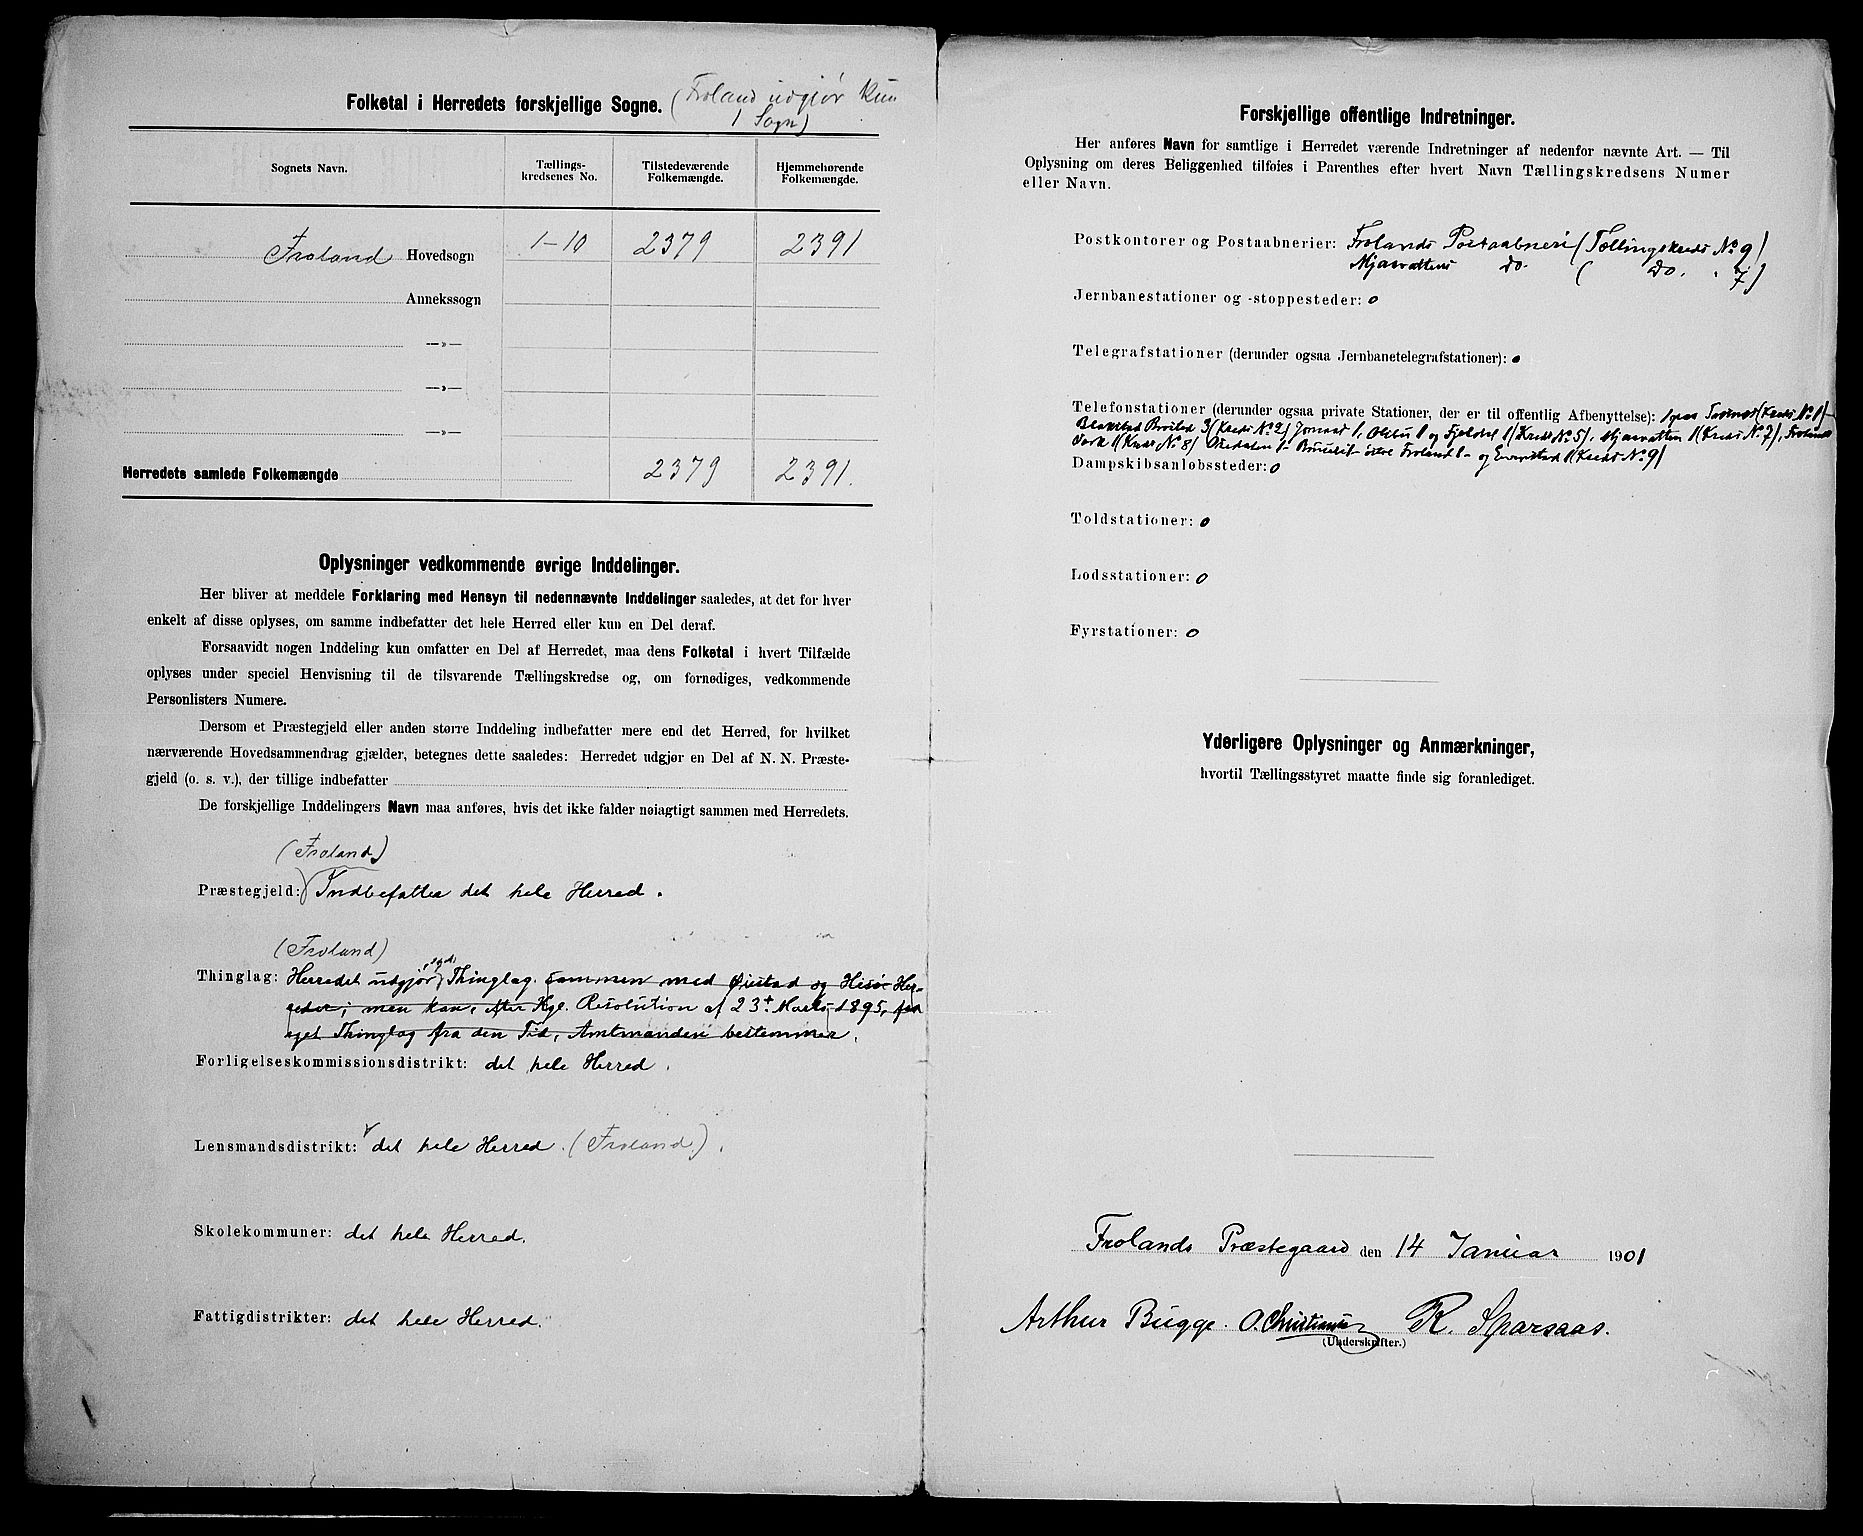 Folketal i Herredets forskjellige Sogne. (Froland udgjør kun
1 Sogn)
Sognets Navn. Tællings-kredsenes No. Tilstedeværende Folkemængde. Hjemmehørende Folkemængde.
Froland Hovedsogn 1-10 2379 2391
Annekssogn
—»—
—»—
—»—
Herredets samlede Folkemængde 2379 2391.
Oplysninger vedkommende øvrige Inddelinger.
Her bliver at meddele Forklaring med Hensyn til nedennævnte Inddelinger saaledes, at det for hver
enkelt af disse oplyses, om samme indbefatter det hele Herred eller kun en Del deraf.
Forsaavidt nogen Inddeling kun omfatter en Del af Herredet, maa dens Folketal i hvert Tilfælde
oplyses under speciel Henvisning til de tilsvarende Tællingskredse og, om fornødiges, vedkommende
Personlisters Numere.
Dersom et Præstegjeld eller anden større Inddeling indbefatter mere end det Herred, for hvilket
nærværende Hovedsammendrag gjælder, betegnes dette saaledes: Herredet udgjør en Del af N. N. Præste-
gjeld (o. s. v.), der tillige indbefatter
De forskjellige Inddelingers Navn maa anføres, hvis det ikke falder nøiagtigt sammen med Herredets.
(Froland)
Præstegjeld: Indbefatter det hele Herred.
(Froland)
Thinglag: Herredet udgjør eget Thinglag. sammen med Øiestad og Hisø Her-
reder; men kan, efter Kgl. Resolution af 23de Marts 1895, faa
eget Thinglag fra den Tid, Amtmanden bestemmer.
Forligelseskommissionsdistrikt: det hele Herred.
Lensmandsdistrikt: det hele Herred. (Froland).
Skolekommuner: det hele Herred.
Fattigdistrikter: det hele Herred.
Forskjellige offentlige Indretninger.
Her anføres Navn for samtlige i Herredet værende Indretninger af nedenfor nævnte Art. — Til
Oplysning om deres Beliggenhed tilføies i Parenthes efter hvert Navn Tællingskredsens Numer
eller Navn.
Postkontorer og Postaabnerier: Frolands Postaabneri (Tællingskreds No 9)
Mjaavattens do. ( do. . 7)
Jernbanestationer og -stoppesteder: 0
Telegrafstationer (derunder ogsaa Jernbanetelegrafstationer): 0
Telefonstationer (derunder ogsaa private Stationer, der er til offentlig Afbenyttelse): (Kreds No 1)
Blakstad 3 (Kreds No 2) 1, 1 og 1 (Kreds No 5), Mjaavatten 1 (Kreds No 7), Frolands
Værk 1 (Kreds No 8) 1 - Froland 1 - og 1 (Kreds No 9)
Dampskibsanløbssteder: 0
Toldstationer: 0
Lodsstationer: 0
Fyrstationer: 0
Yderligere Oplysninger og Anmærkninger,
hvortil Tællingsstyret maatte finde sig foranlediget.
Frolands Præstegaard den 14 Januar 1901
Arthur Bugge. O. Christiansen R. Sparsaas.
(Underskrifter.)